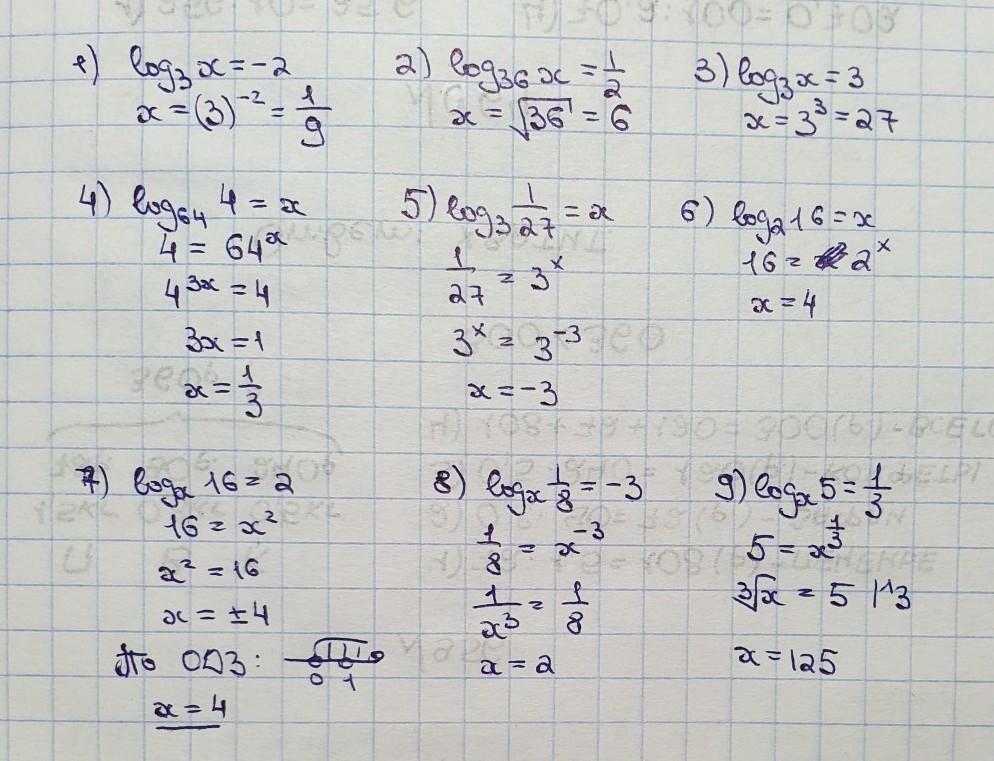 1) log₃ x = -2
x = (3)⁻² = 1/9
2) log₃₆ x = 1/2
x = √36 = 6
3) log₃ x = 3
x = 3³ = 27
4) log₆₄ 4 = x
4 = 64ˣ
4³ˣ = 4
3x = 1
x = 1/3
5) log₃ 1/27 = x
1/27 = 3ˣ
3ˣ = 3⁻³
x = -3
6) log₂ 16 = x
16 = 2ˣ
x = 4
7) logₓ 16 = 2
16 = x²
x² = 16
x = ±4
По ОДЗ:
0 1
x = 4
8) logₓ 1/8 = -3
1/8 = x⁻³
1/x³ = 1/8
x = 2
9) logₓ 5 = 1/3
5 = x^(1/3)
³√x = 5 |^3
x = 125